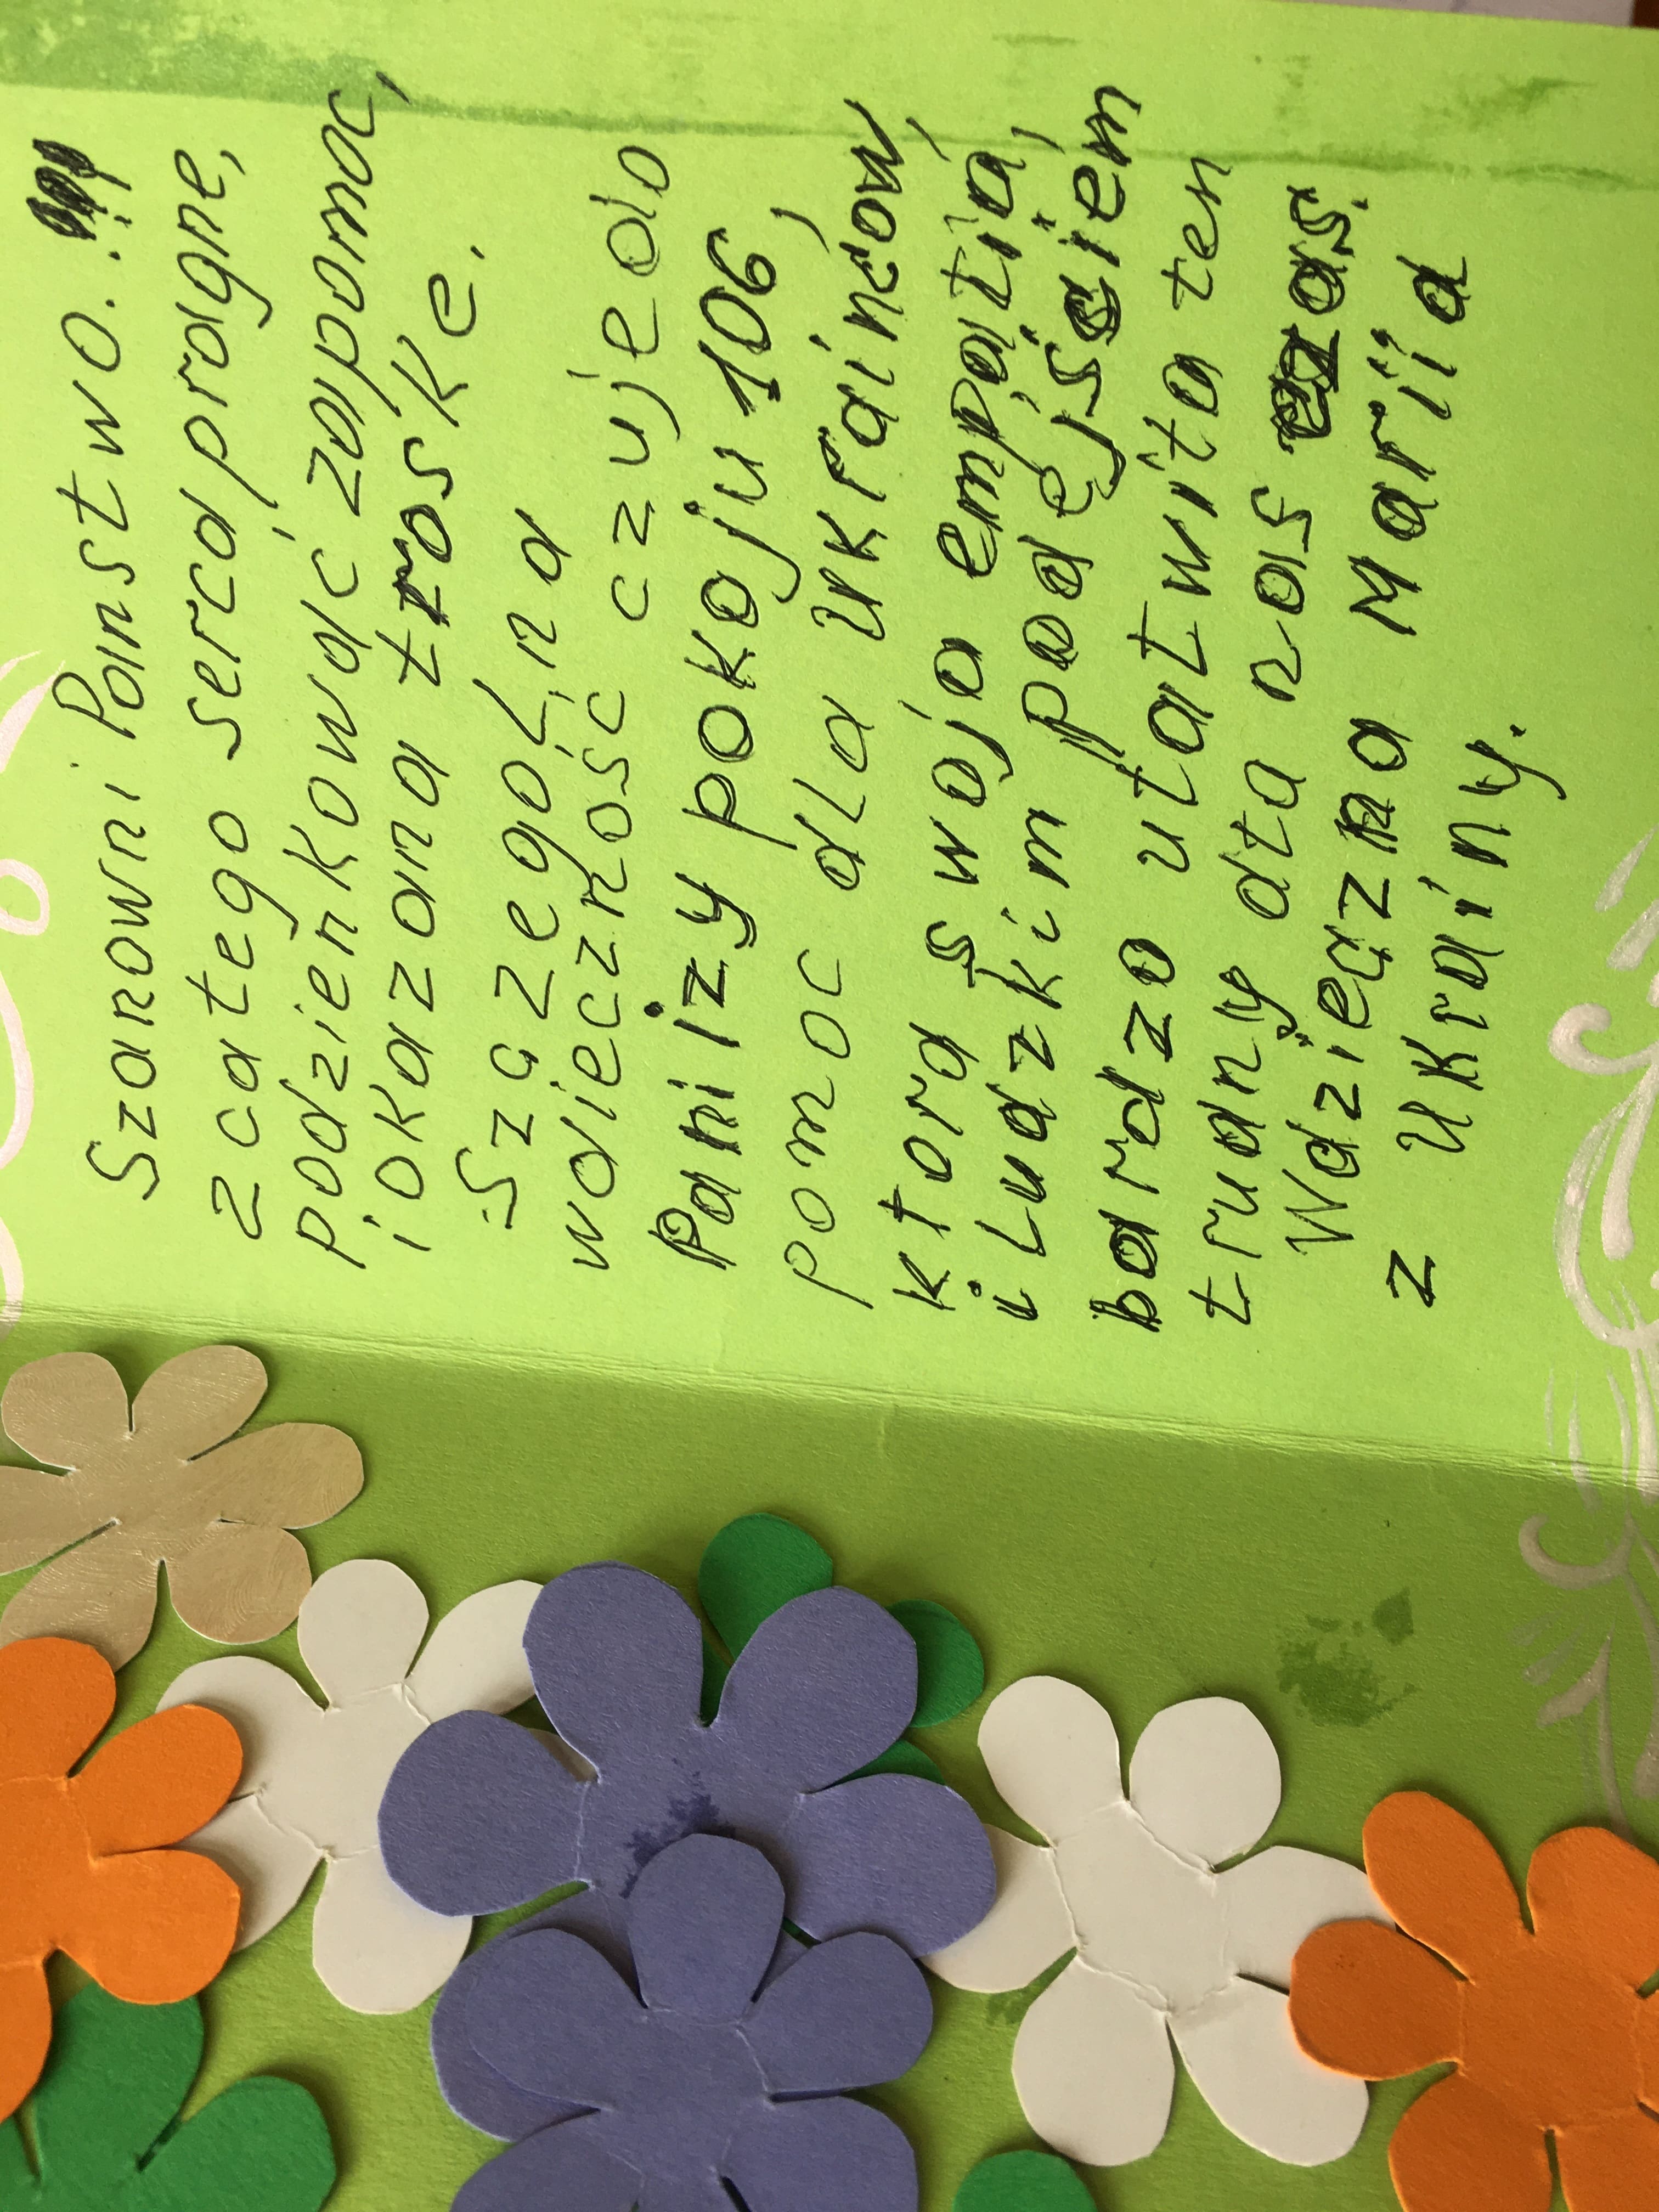 Szanowni Panstwo.!!!
z całego serca pragne,
podzienkować za pomoc,
i okazana troske.
Szczegolna
wdieczność czuje do
Pani z pokoju 106,
pomoc dla Ukraincow,
ktora swoja empatia,
i Ludzkim podejsciem
bardzo ułatwiła ten
trudny dla nas czas.
Wdzieczna Mariia
z Ukrainy.